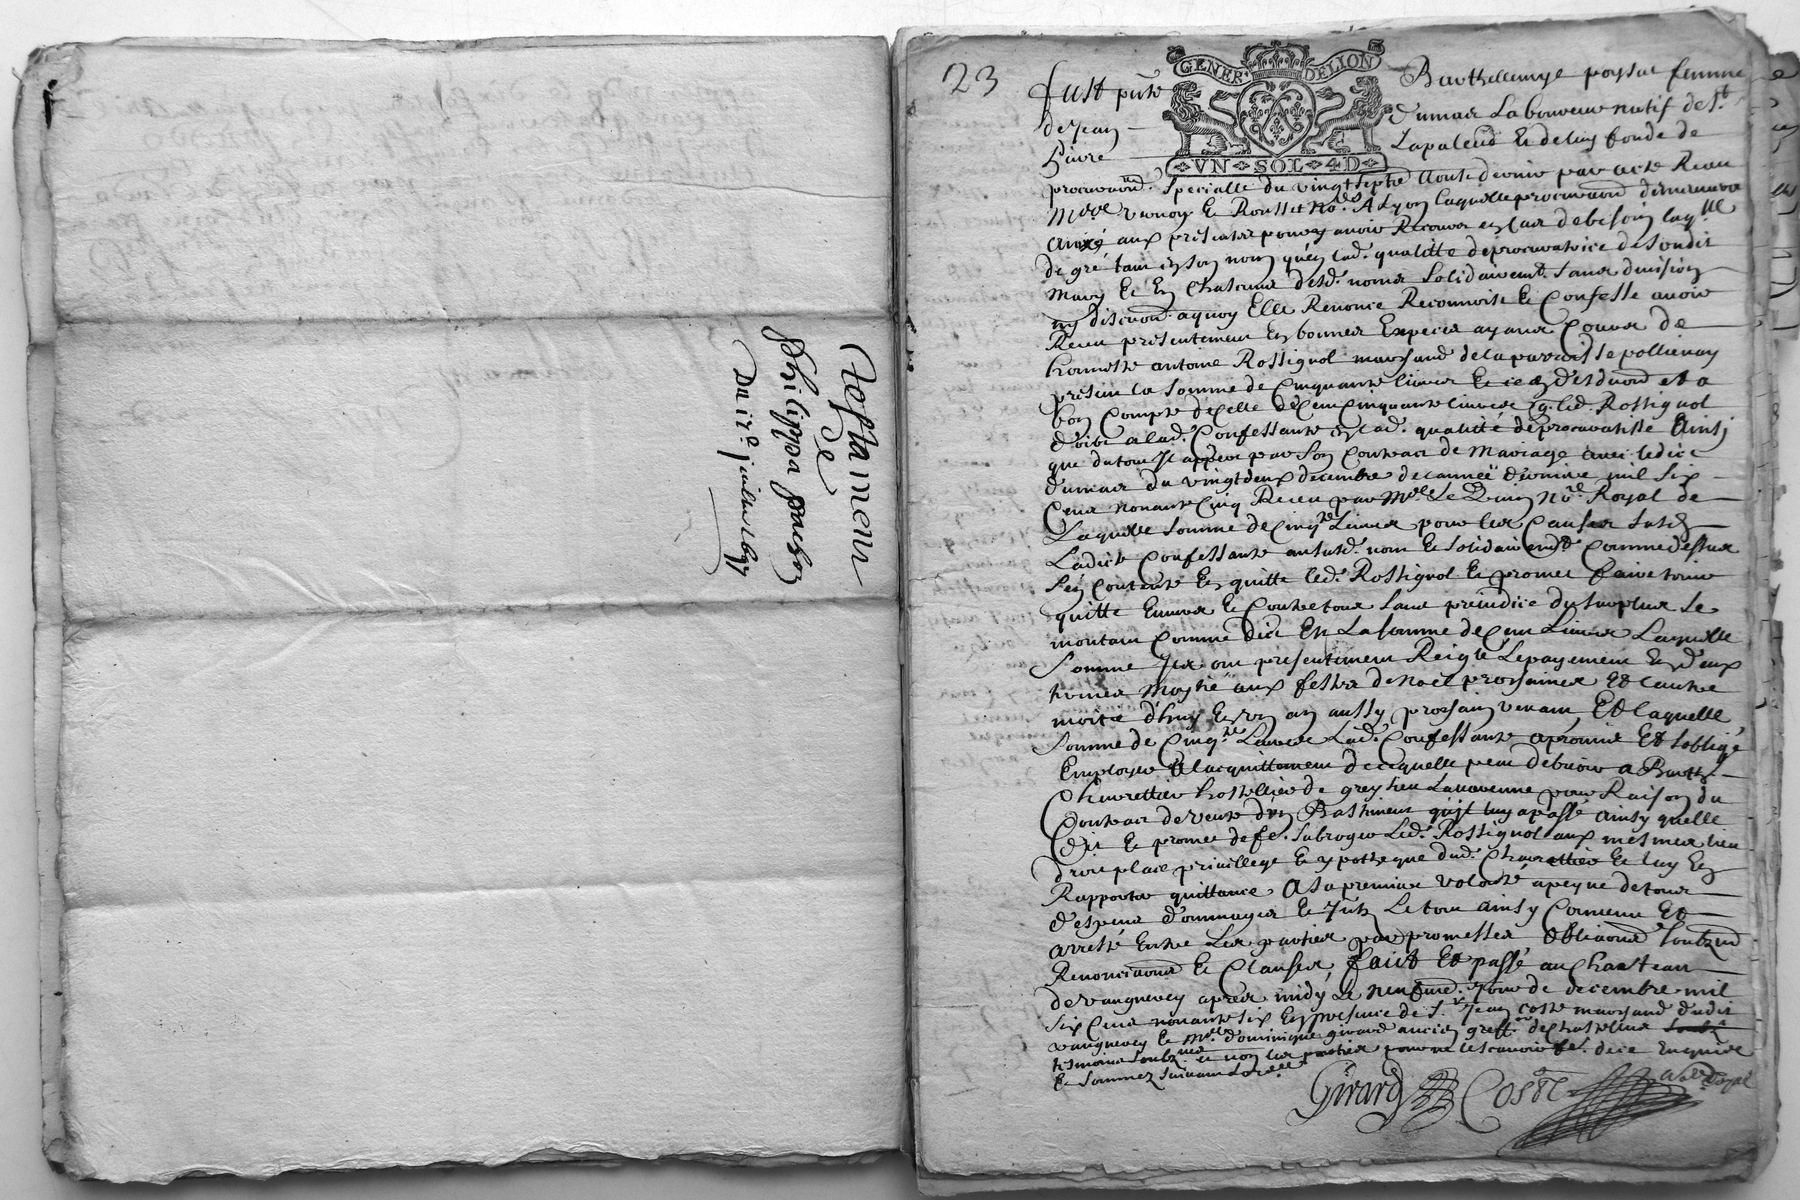 Testament
de
Philippa
Du 12e. juillet 1697
23
GENER. DELION
VN SOL 4D
fust pnte Barthellemye poysat femme
de Jean Dumas Laboureur natif de St.
Pierre Lapaleud Et de luy fondé de
procuraon. specialle du vingtsept Aoust dernier par acte Receu
Me Et Rousset no.res A Lyon laquelle procuraon demeurera
aux presentes pour y avoir Recours en cas de besoin laq.lle
de gré tant en son nom qu'en lad. qualitté de procuratrice de sondit
mary Et En chascun desd. noms solidairemt. sans division
ny discuon. aquoy Elle Renonce Reconnoist Et Confesse avoir
Receu presentement En bonnes Especes ayant Cours de
honneste antoine Rossignol marchand de la parroisse pollienay
present la somme de Cinquante livres Et ce En desduon et a
bon Compte de celle de Cent Cinquante livres q. led. Rossignol
doibt a lad. Confessante En lad. qualitté de procuratrisse Ainsi
que du tout Il appert par son Contract de Mariage avec ledict
dumas du vingtdeux decembre de l'année derniere mil six
Cens nonante Cinq Receu par Me no.re Royal de
Laquelle somme de Cinq.te Livres pour les Causes susd.
Ladicte Confessante aususd. nom Et solidairemt Comme dessus
s'en Contente En quitte led. Rossignol Et promet faire tenir
quitte Envers Et Contre tous sans prejudice du surplus se
montant Comme dict Est La somme de Cent Livres Laquelle
somme Ils ont presentement Reiglé Le payement En deux
termes Moytié aux festes de Noel prochaines Et l'autre
moitié d'huy En un an aussy prochain venant, Et laquelle
somme de Cinq.te Livres Lad. Confessante a promis Et s'obligé
Employer A l'acquittement de ce quelle peut debvoir a Barth.
Chavrettier hostellier de greysieu Lavarenne pour Raison du
Contract de vente d'un Bastiment qu'il luy a passé ainsy quelle
dit Et promet de fe. subroger Led. Rossignol aux mesmes lieu
droit place privillege Et ypotheque dud. Chavrettier Et luy En
Rapporter quittance A sa premiere volonté a peyne de tous
despens dommages Et Intz. Le tout ainsy Convenu Et
arresté Entre Les parties par promesses Obligaons
Renonciaons Et Clauses, faict Et passé au Chasteau
de vaugneray apres midy Le neufme. Jour de decembre mil
six Cens nonante six En presence de Sr. Jean Coste marchand dudit
vaugneray Et Me dominique girard ancien greff. de Chasteline
tesmoins soubz.nes Et non les parties pour ne le scavoir fe. de ce Enquise
Et sommez suivant Lord.ce
Girard Coste